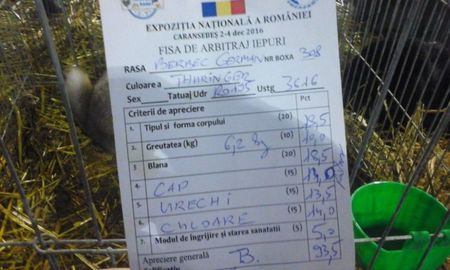 EXPOZIȚIA NAȚIONALĂ A ROMÂNIEI
CARANSEBEȘ 2-4 dec 2016
FISA DE ARBITRAJ IEPURI
RASA BERBEC GERMAN NR BOXA 308
Culoare a THURINGER
Sex Tatuaj Udr RO135 Ustg 3C16
Criterii de apreciere Pct
1. Tipul si forma corpului (20) 19,5
2. Greutatea (kg) 6,2 kg (10) 10,0
3. Blana (20) 18,5
4. CAP (15)
5. URECHI (15) 13,5
6. CULOARE (15) 14,0
7. Modul de ingrijire si starea sanatatii (5) 5,0
Apreciere generală B. 93,5